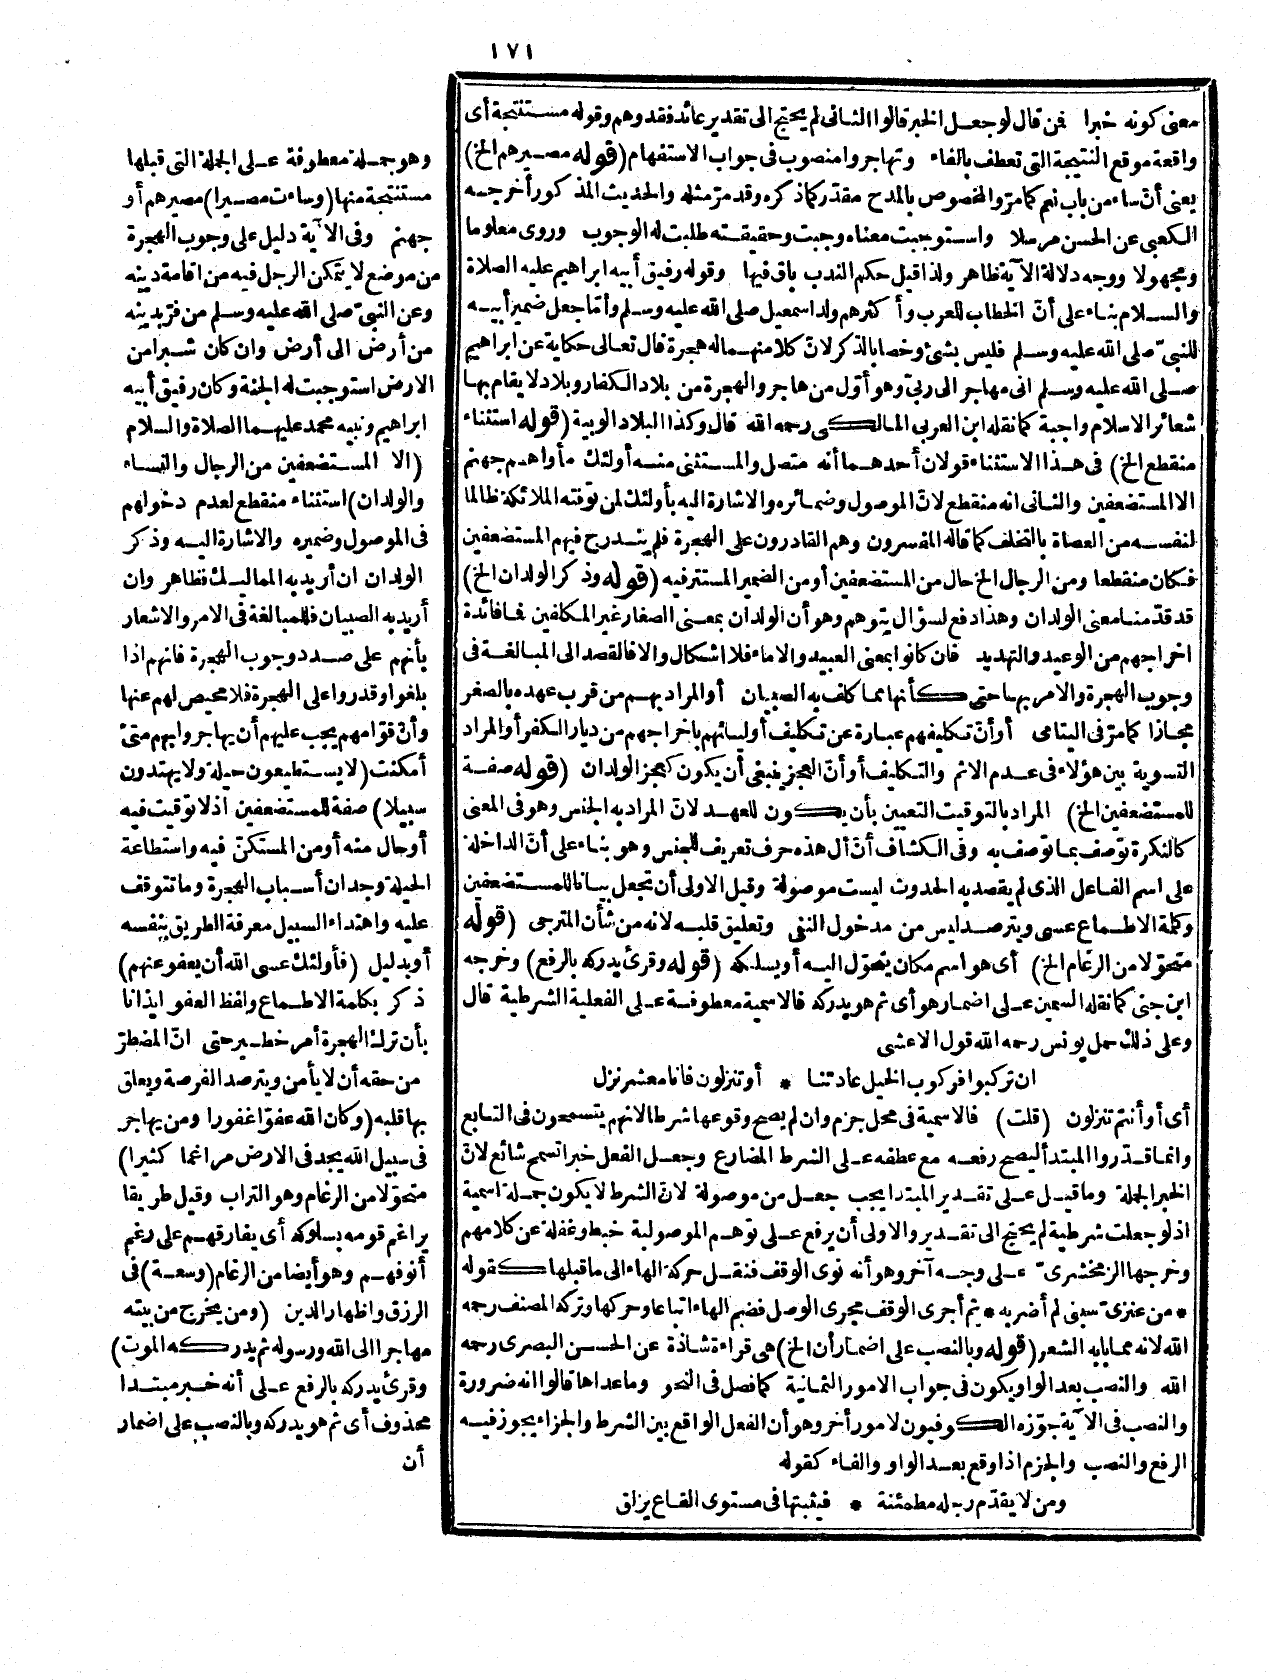 ١٧١
معنى كونه خبرا فمن قال لو جعل الخبر قالوا الثانى لم يحتج الى تقدير عائد فقد وهم وقوله مستنتجة أى
واقعة موقع النتيجة التى تعطف بالفاء وتهاجروا منصوب فى جواب الاستفهام (قوله مصيرهم الخ)
يعنى أنّ ساء من باب نعم كما مرّ والمخصوص بالمدح مقدّر كما ذكره وقد مرّ مثله والحديث المذكور أخرجه
الكعبى عن الحسن مرسلا واستوجبت معناه وجبت وحقيقته طلبت له الوجوب وروى معلوما
ومجهولا ووجه دلالة الآية ظاهر ولذا قيل حكم الندب باق فيها وقوله رفيق أبيه ابراهيم عليه الصلاة
والسلام بناء على أنّ الخطاب للعرب وأكثرهم ولد اسمعيل صلى الله عليه وسلم وأمّا جعل ضمير أبيه
للنبىّ صلى الله عليه وسلم فليس بشئ وخصا بالذكر لانّ كلا منهما له هجرة قال تعالى حكاية عن ابراهيم
صلى الله عليه وسلم انى مهاجر الى ربى وهو أوّل من هاجر والهجرة من بلاد الكفار وبلاد لا يقام بها
شعائر الاسلام واجبة كما نقله ابن العربى المالكى رحمه الله قال وكذا البلاد الوبية (قوله استثناء
منقطع الخ) فى هذا الاستثناء قولان أحدهما أنه متصل والمستثنى منه أولئك مأواهم جهنم
الا المستضعفين والثانى انه منقطع لانّ الموصول وضمائره والاشارة اليه بأولئك لمن توفته الملائكة ظالما
لنفسه من العصاة بالتخلف كما قاله المفسرون وهم القادرون على الهجرة فلم يندرج فيهم المستضعفين
فكان منقطعا ومن الرجال الخ حال من المستضعفين أو من الضمير المستتر فيه (قوله وذكر الولدان الخ)
قد قدّمنا معنى الولدان وهذا دفع لسؤال يتوهم وهو أن الولدان بمعنى الصغار غير المكلفين فما فائدة
اخراجهم من الوعيد والتهديد فان كانوا بمعنى العبيد والاماء فلا اشكال والا فالقصد الى المبالغة فى
وجوب الهجرة والامر بها حتى كأنها مما كلف به الصبيان أو المراد بهم من قرب عهده بالصغر
مجازا كما مرّ فى اليتامى أو أنّ تكليفهم عبارة عن تكليف أوليائهم باخراجهم من ديار الكفر أو المراد
التسوية بين هؤلاء فى عدم الاثم والتكليف أو أنّ العجز ينبغى أن يكون كعجز الولدان (قوله صفة
للمستضعفين الخ) المراد بالتوقيت التعيين بأن يكون للعهد لانّ المراد به الجنس وهو فى المعنى
كالنكرة توصف بما توصف به وفى الكشاف أنّ أل هذه حرف تعريف للجنس وهو بناء على أنّ الداخلة
على اسم الفاعل الذى لم يقصد به الحدوث ليست موصولة وقيل الاولى أن تجعل بيانا للمستضعفين
وكلمة الاطماع عسى ويترصد ليس من مدخول النفى وتعليق قلبه لانه من شأن المترجى (قوله
متحوّلا من الرغام الخ) أى هو اسم مكان يتحوّل اليه أو يسلكه (قوله وقرئ يدركه بالرفع) وخرجه
ابن جنى كما نقله السمين على اضمار هو أى ثم هو يدركه فالاسمية معطوفة على الفعلية الشرطية قال
وعلى ذلك حمل يونس رحمه الله قول الاعشى
ان تركبوا فركوب الخيل عادتنا * أو تنزلون فانا معشر نزل
أى أو أنتم تنزلون (قلت) فالاسمية فى محل جزم وان لم يصح وقوعها شرطا لانهم يتسمعون فى التابع
وانما قدّروا المبتدأ ليصح رفعه مع عطفه على الشرط المضارع وجعل الفعل خبرا تسمح شائع لانّ
الخبر الجملة وما قيل على تقدير المبتدا يجب جعل من موصولة لانّ الشرط لا يكون جملة اسمية
اذ لو جعلت شرطية لم يحتج الى تقدير والاولى أن يرفع على توهم الموصولية خبط وغفلة عن كلامهم
وخرجها الزمخشرىّ على وجه آخر وهو أنه نوى الوقف فنقل حركة الهاء الى ما قبلها كقوله
* من عنزىّ سبنى لم أضربه * ثم أجرى الوقف مجرى الوصل فضم الهاء اتباعا وحركها وتركه المصنف رحمه
الله لانه مما بابه الشعر (قوله وبالنصب على اضمار أن الخ) هى قراءة شاذة عن الحسن البصرى رحمه
الله والنصب بعد الواو يكون فى جواب الامور الثمانية كما فصل فى النحو وما عداها قالوا انه ضرورة
والنصب فى الآية جوّزه الكوفيون لامور أخر وهو أن الفعل الواقع بين الشرط والجزاء يجوز فيه
الرفع والنصب والجزم اذا وقع بعد الواو والفاء كقوله
ومن لا يقدّم رجله مطمئنة * فيثبتها فى مستوى القاع يزلق
وهو جملة معطوفة على الجملة التى قبلها
مستنتجة منها (وساءت مصيرا) مصيرهم أو
جهنم وفى الآية دليل على وجوب الهجرة
من موضع لا يتمكن الرجل فيه من اقامة دينه
وعن النبىّ صلى الله عليه وسلم من فرّ بدينه
من أرض الى أرض وان كان شبرا من
الارض استوجبت له الجنة وكان رفيق أبيه
ابراهيم ونبيه محمد عليهما الصلاة والسلام
(الا المستضعفين من الرجال والنساء
والولدان) استثناء منقطع لعدم دخولهم
فى الموصول وضميره والاشارة اليه وذكر
الولدان ان أريد به المماليك فظاهر وان
أريد به الصبيان فللمبالغة فى الامر والاشعار
بأنهم على صدد وجوب الهجرة فانهم اذا
بلغوا وقدروا على الهجرة فلا محيص لهم عنها
وأنّ قوّامهم يجب عليهم أن يهاجروا بهم متى
أمكنت (لا يستطيعون حيلة ولا يهتدون
سبيلا) صفة للمستضعفين اذ لا توقيت فيه
أو حال منه أو من المستكنّ فيه واستطاعة
الحيلة وجدان أسباب الهجرة وما تتوقف
عليه واهتداء السبيل معرفة الطريق بنفسه
أو بدليل (فأولئك عسى الله أن يعفو عنهم)
ذكر بكلمة الاطماع ولفظ العفو ايذانا
بأن ترك الهجرة أمر خطير حتى انّ المضطرّ
من حقه أن لا يأمن ويترصد الفرصة ويعلق
بها قلبه (وكان الله عفوّا غفورا ومن يهاجر
فى سبيل الله يجد فى الارض مراغما كثيرا)
متحوّلا من الرغام وهو التراب وقيل طريقا
يراغم قومه بسلوكه أى يفارقهم على رغم
أنوفهم وهو أيضا من الرغام (وسعة) فى
الرزق واظهار الدين (ومن يخرج من بيته
مهاجرا الى الله ورسوله ثم يدركه الموت)
وقرئ يدركه بالرفع على أنه خبر مبتدا
محذوف أى ثم هو يدركه وبالنصب على اضمار
أن